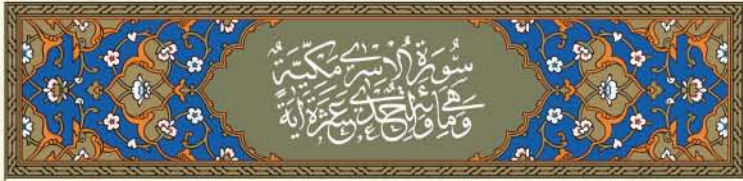 سُورَةُ الإِسْرَى مَكِّيَّةٌ
وَهْيَ مِائَةٌ وَإِحْدَى عَشْرَةَ آيَةً